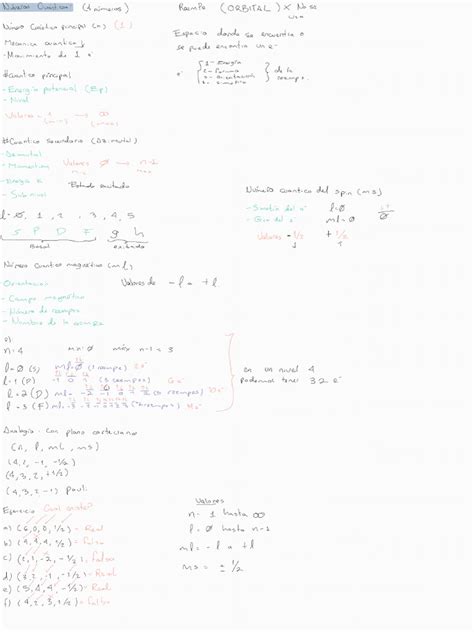 Números Cuánticos (4 números)
Reempe (ORBITAL) X No se usa
Número Cuántico principal (n) (1)
Espacio donde se encuentra o
se puede encontrar un e-
Mecánica cuántica
- Movimiento de 1 e-
e- 1- Energía
2- Forma
3- Orientación
4- Simetría
de la reempe.
# cuántico principal
- Energía potencial (Ep)
- Nivel
Valores = 1 → ∞
(min) (max)
# Cuántico secundario
- Azimutal
- Momentum
Valores 0 → n-1
- Energía K
Estado excitado
- Subnivel
l = 0, 1, 2, 3, 4, 5
S P D F g h
Basal
excitado
Número cuántico del spin (ms)
- Simetría del e- l=0
- Giro del e- ml=0
Valores -1/2 +1/2
Número Cuántico magnético (ml)
- Orientación
Valores de -l a +l.
- Campo magnético
- Número de reempes
- Nombre de la reempe
n=4 min=0 máx n-1=3
l=0 (S) ml=0 (1 reempe) 2 e-
l=1 (P) -1 0 1 (3 reempes) 6 e-
l=2 (D) ml= -2 -1 0 1 2 (5 reempes) 10 e-
l=3 (F) ml= -3 -2 -1 0 1 2 3 (7 reempes)
en un nivel 4
podemos tener 32 e-
Analogía - Con plano cartesiano
(n, l, ml, ms)
(4, 1, -1, -1/2)
(4, 3, 2, +1/2)
Pauli
Ejercicio Cual existe?
a) (6, 0, 0, 1/2) - Real
b) (4, 4, 4, 1/2) - Falso
c) - Falso
d) - Real
e) (5, 4, 4, -1/2) - Real
f) (4, 2, 3, +1/2) - Falso
Valores
n= 1 hasta ∞
l= 0 hasta n-1
ml= -l a +l
ms= ± 1/2